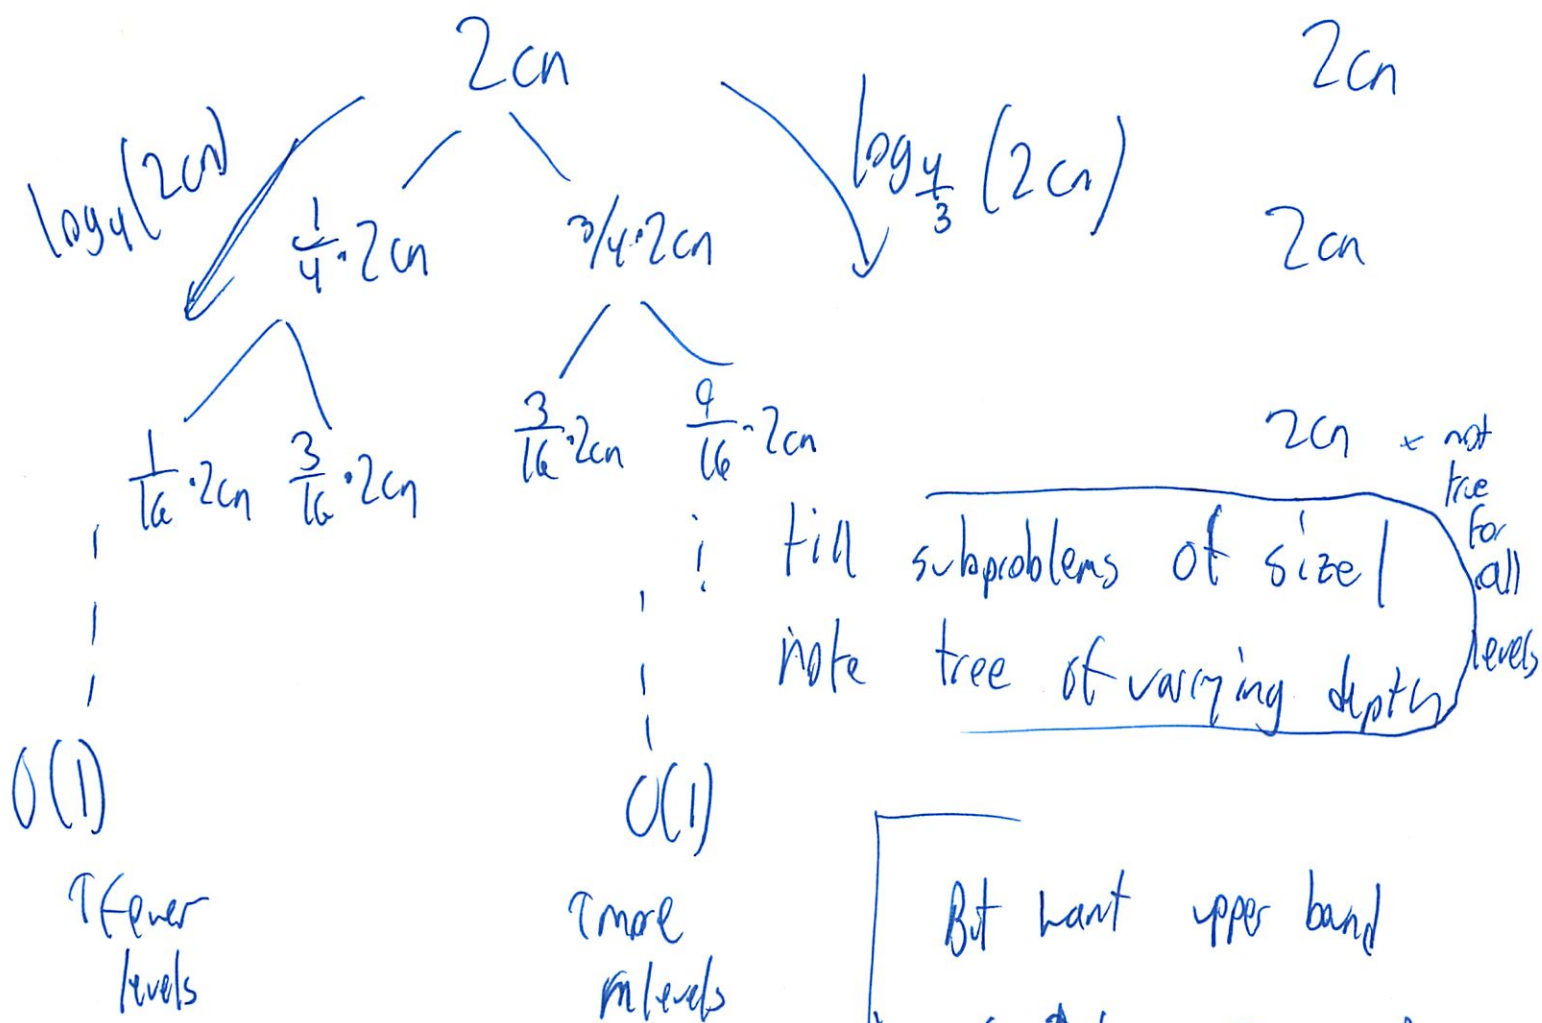 2cn 2cn
log₄(2cn) log_{4/3}(2cn)
1/4·2cn 3/4·2cn 2cn
1/16·2cn 3/16·2cn 3/16·2cn 9/16·2cn 2cn × not
true
for
all
levels
till subproblems of size 1
note tree of varying depth
O(1) O(1)
↑ fewer
levels
↑ more
levels
But want upper bound